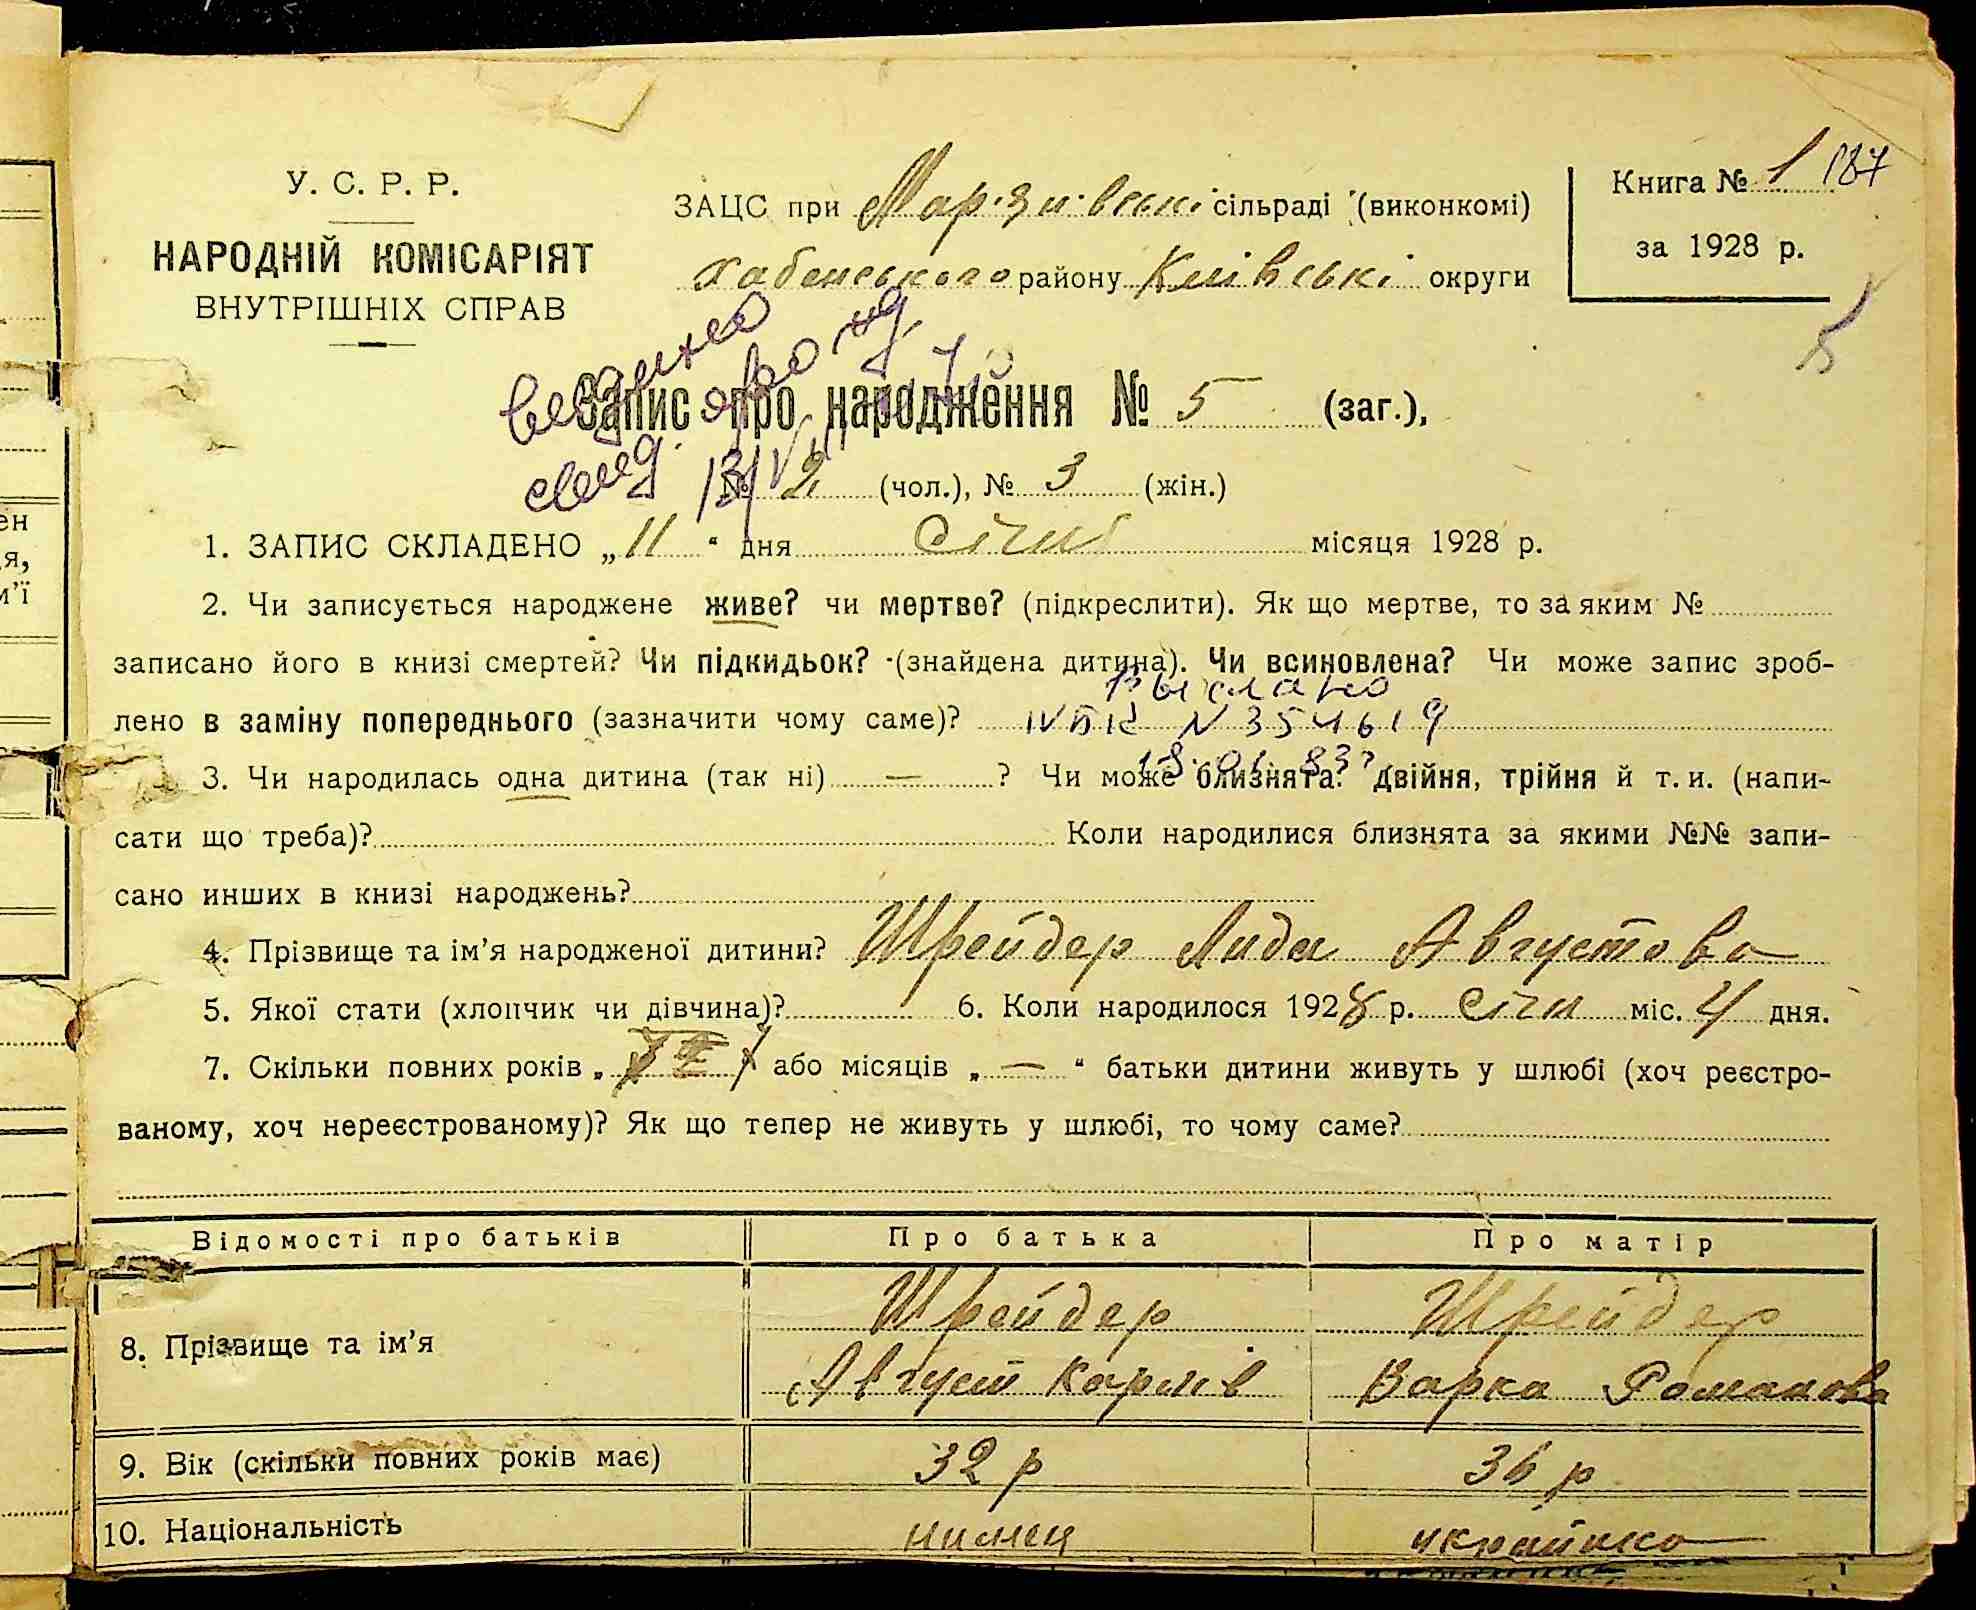 У. С. Р. Р.
НАРОДНІЙ КОМІСАРІЯТ
ВНУТРІШНІХ СПРАВ
ЗАЦС при Мар'янівські сільраді (виконкомі)
Хабенського району Київські округи
Книга № 1 187
за 1928 р.
5
Запис про народження № 5 (заг.),
№ 2 (чол.), № 3 (жін.)
1. ЗАПИС СКЛАДЕНО „ 11 “ дня Січня місяця 1928 р.
2. Чи записується народжене живе? чи мертве? (підкреслити). Як що мертве, то за яким №
записано його в книзі смертей? Чи підкидьок? (знайдена дитина). Чи всиновлена? Чи може запис зроб-
Выслано
лено в заміну попереднього (зазначити чому саме)? IV БК N 354619
18.01.83
3. Чи народилась одна дитина (так ні) — ? Чи може близнята? двійня, трійня й т. и. (напи-
сати що треба)? Коли народилися близнята за якими №№ запи-
сано инших в книзі народжень?
4. Прізвище та ім’я народженої дитини? Шрейдер Лида Августова
5. Якої стати (хлопчик чи дівчина)? 6. Коли народилося 1928 р. Січн міс. 4 дня.
7. Скільки повних років „ або місяців „ — “ батьки дитини живуть у шлюбі (хоч реєстро-
ваному, хоч нереєстрованому)? Як що тепер не живуть у шлюбі, то чому саме?
Відомості про батьків Про батька Про матір
Шрейдер Шрейдер
8. Прізвище та ім’я Август Карлів Варка Романова
9. Вік (скільки повних років має) 32 р 36 р
10. Національність нимец украйнка